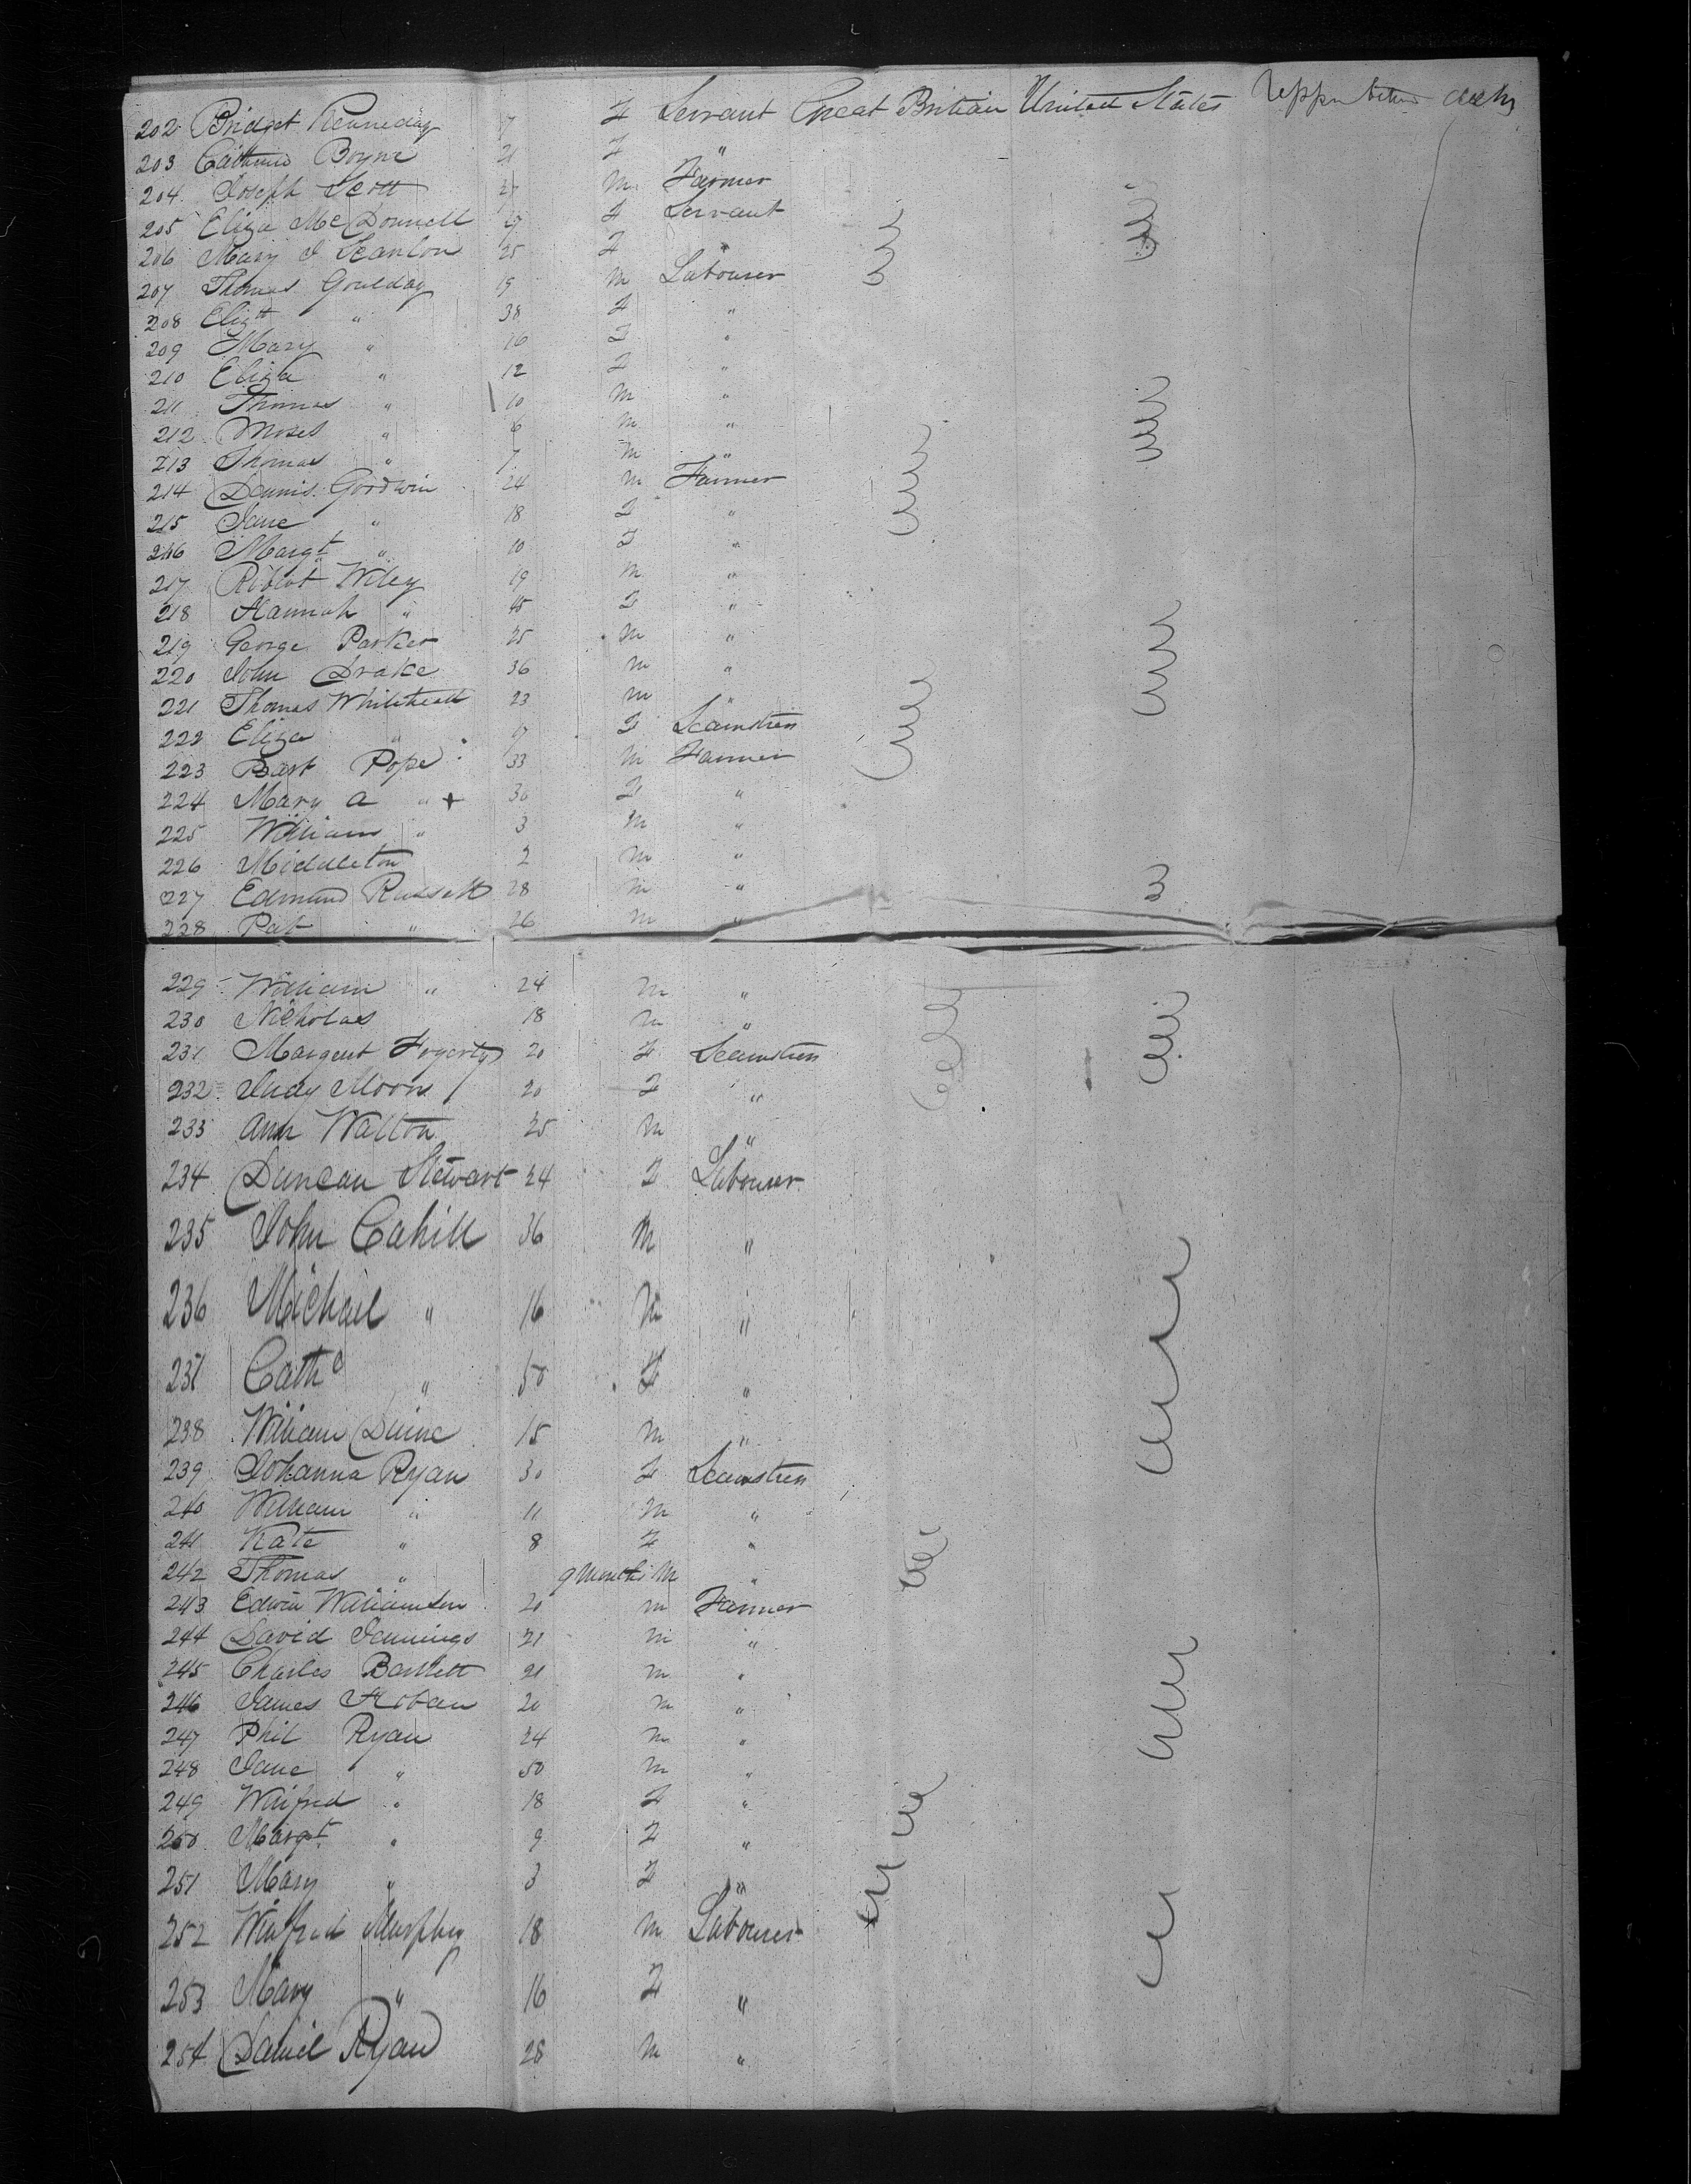 202 Bridget Kenneday 17 F Servant Great Britain United States Upper between decks
203 Catherine Boyne 21 F "
204 Joseph Scott 27 M Farmer
205 Eliza McDonnell 27 F Servant
206 Mary J Scanlon 25 F "
207 Thomas Goulday 19 M Labourer
208 Elizth " 38 F "
209 Mary " 16 F "
210 Eliza " 12 F "
211 Thomas " 10 M "
212 Moses " 6 M "
213 Thomas " 7 M "
214 Dennis Goodwin 24 M Farmer
215 Jane " 18 F "
216 Margt " 10 F "
217 Robert Wiley 19 M "
218 Hannah " 45 F "
219 George Parker 25 M "
220 John Drake 36 M "
221 Thomas Whiteheath 23 M "
222 Eliza " 27 F Seamstress
223 Bart Pope 33 M Farmer
224 Mary A " + 30 F "
225 William " 3 M "
226 Middleton 2 M "
227 Edmund Russell 28 M "
228 Pat " 26 M "
229 William " 24 M "
230 Nicholas 18 M "
231 Margaret Fogerty 20 F Seamstress
232 Judy Moore 20 F "
233 Ann Walton 25 M "
234 Duncan Stewart 24 F Labourer
235 John Cahill 36 M "
236 Michael " 16 M "
237 Cathe " 50 F "
238 William Quinc 15 M "
239 Johanna Ryan 30 F Seamstress
240 William " 11 M "
241 Kate " 8 F "
242 Thomas " 9 months M "
243 Edwin Williamson 20 M Farmer
244 David Jennings 21 M "
245 Charles Bartlett 21 M "
246 James Hoban 20 M "
247 Phil Ryan 24 M "
248 Jane " 50 M "
249 Winifred " 18 F "
250 Margt " 9 F "
251 Mary " 3 F "
252 Winifred Murphy 18 M Labourer
253 Mary " 16 F "
254 Daniel Ryan 28 M "